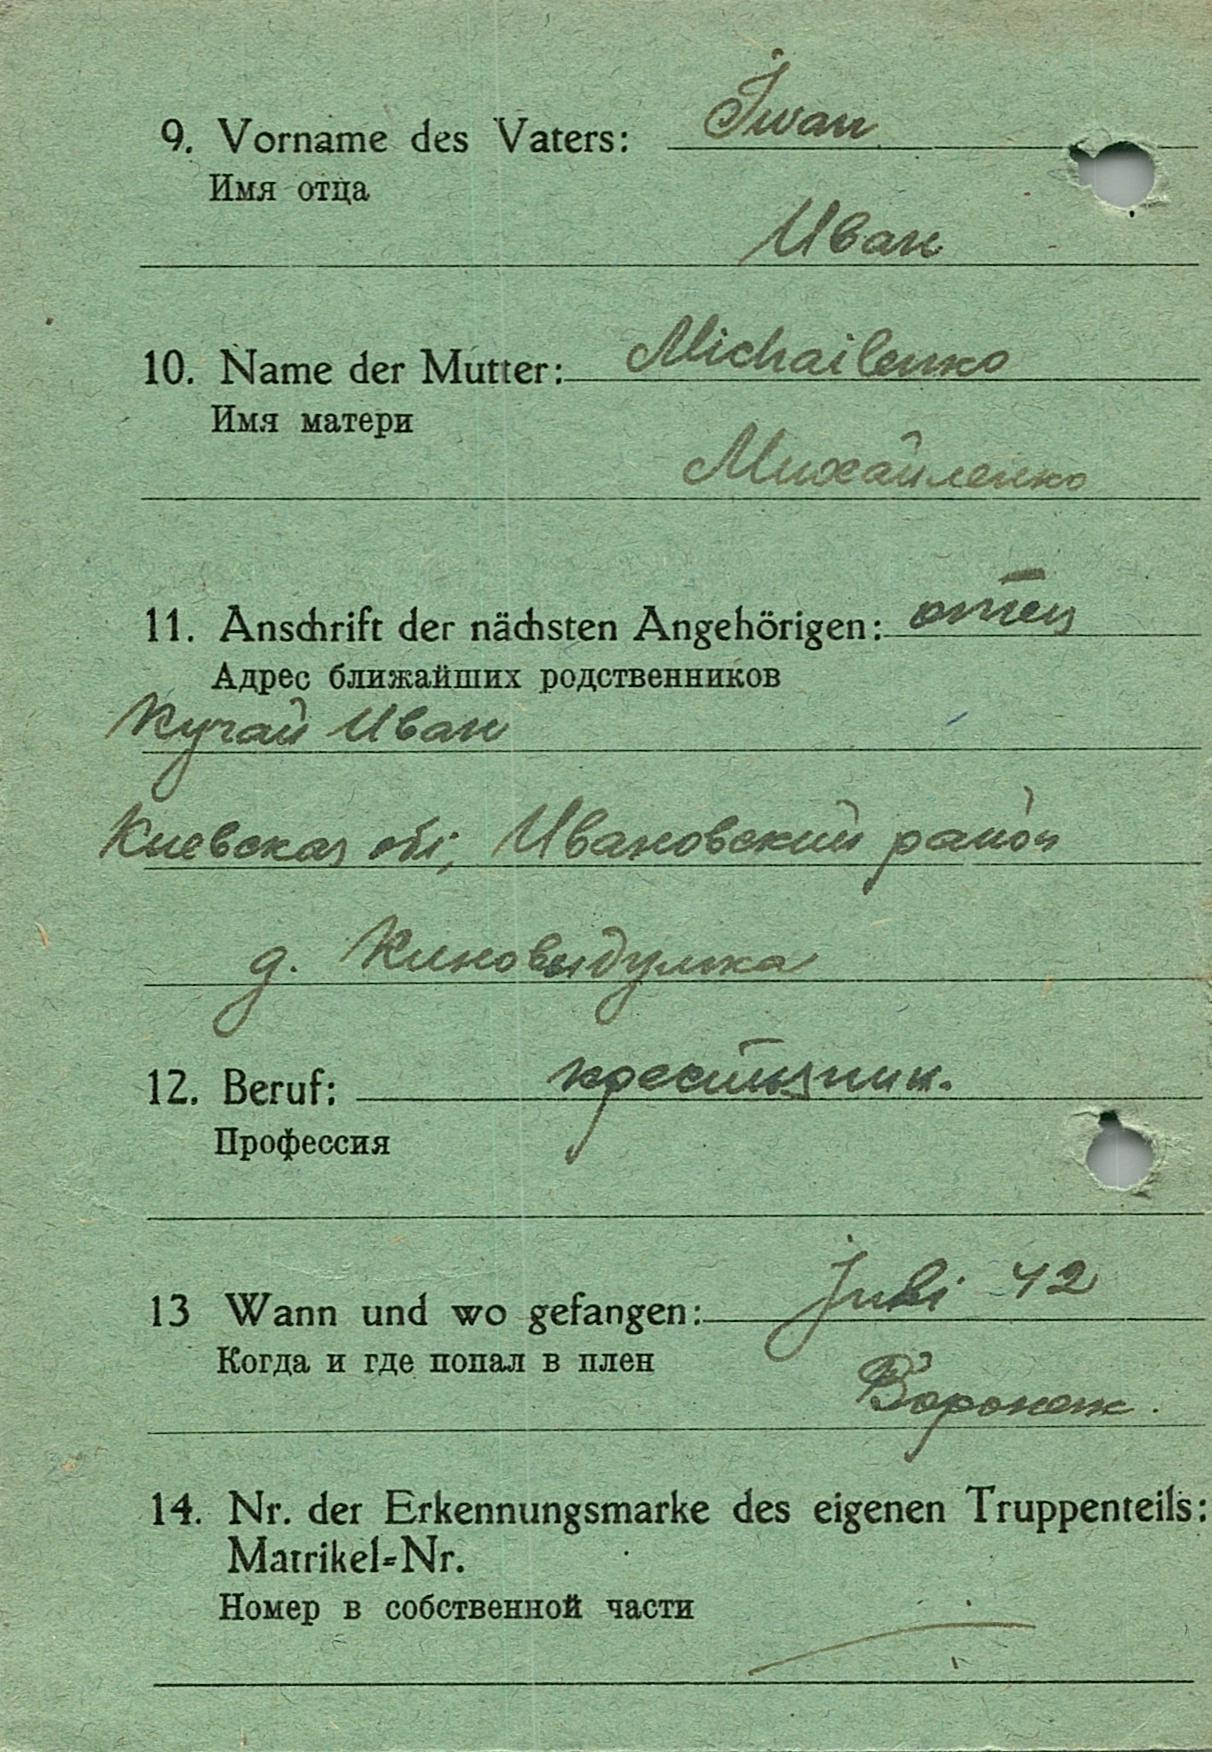 9. Vorname des Vaters: Iwan
Имя отца
Иван
10. Name der Mutter: Michailenko
Имя матери
Михайленко
11. Anschrift der nächsten Angehörigen: отец
Адрес ближайших родственников
Кучай Иван
Киевская обл, Ивановский район
д.
12. Beruf: крестьянин.
Профессия
13 Wann und wo gefangen: Juli 42
Когда и где попал в плен
Воронеж.
14. Nr. der Erkennungsmarke des eigenen Truppenteils:
Matrikel-Nr.
Номер в собственной части